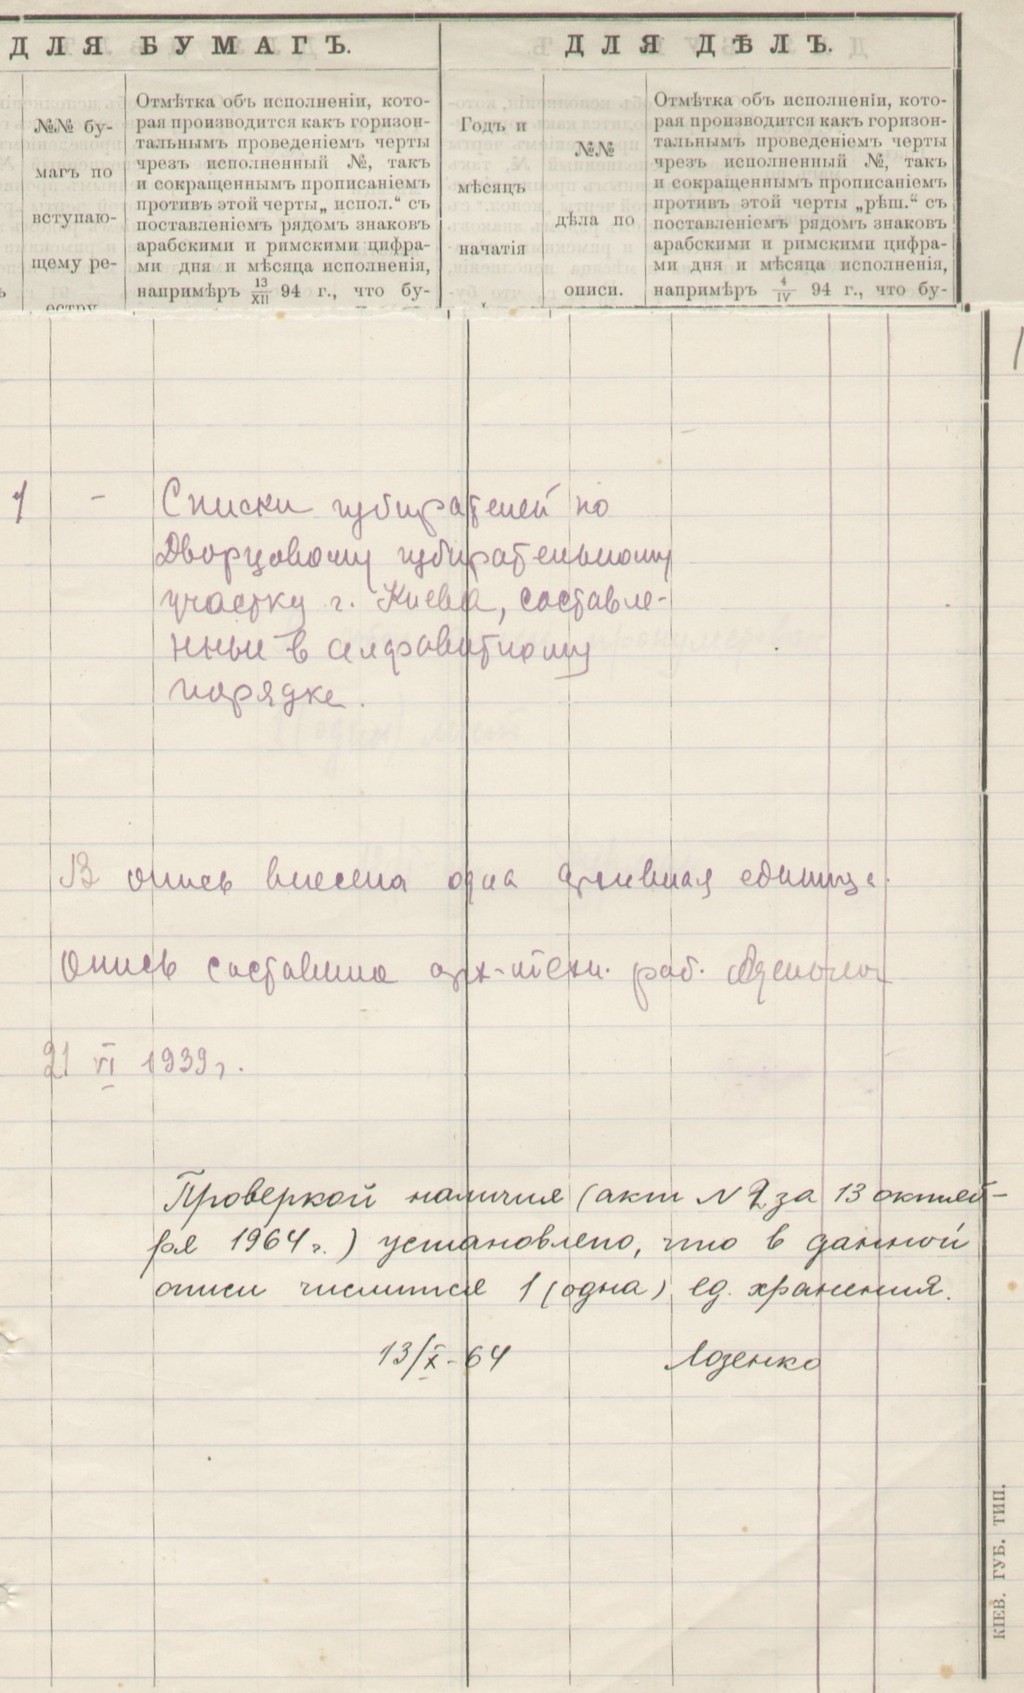 ДЛЯ БУМАГЪ.
ДЛЯ ДѢЛЪ.
№№ бу-
магъ по
вступаю-
щему ре-
естру
Отмѣтка объ исполненіи, кото-
рая производится какъ горизон-
тальнымъ проведеніемъ черты
чрезъ исполненный №, такъ
и сокращеннымъ прописаніемъ
противъ этой черты „ испол.“ съ
поставленіемъ рядомъ знаковъ
арабскими и римскими цифра-
ми дня и мѣсяца исполненія,
напримѣръ 13/XII 94 г., что бу-
Годъ и
мѣсяцъ
начатія
№№
дѣла по
описи.
Отмѣтка объ исполненіи, кото-
рая производится какъ горизон-
тальнымъ проведеніемъ черты
чрезъ исполненный №, такъ
и сокращеннымъ прописаніемъ
противъ этой черты „рѣш.“ съ
поставленіемъ рядомъ знаковъ
арабскими и римскими цифра-
ми дня и мѣсяца исполненія,
напримѣръ 4/IV 94 г., что бу-
1 - Списки избирателей по
Дворцовому избирательному
участку г. Киева, составле-
нные в алфавитному
порядке.
В опись внесена одна архивная единица.
Опись составила арх-техн. раб.
21 VI 1939 г.
Проверкой наличия (акт N 2 за 13 октяб-
ря 1964 г.) установлено, что в данной
описи числится 1 (одна) ед. хранения.
13/X-64 Лозенко
КІЕВ. ГУБ. ТИП.